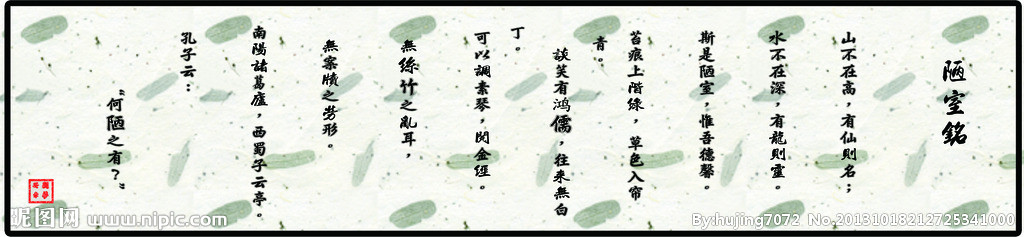 陋室銘
山不在高，有仙則名；
水不在深，有龍則靈。
斯是陋室，惟吾德馨。
苔痕上階綠，草色入帘
青。
談笑有鸿儒，往来無白
丁。
可以調素琴，閱金經。
無絲竹之亂耳，
無案牘之勞形。
南陽諸葛廬，西蜀子云亭。
孔子云：
“何陋之有？”
昵图网 www.nipic.com
By:hujing7072 No.20131018212725341000